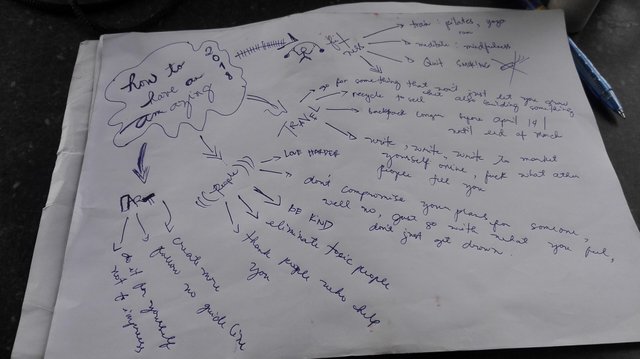 how to
have an
amazing
2018
train: pilates, yoga
run
meditate: mindfulness
Quit smoking
TRAVEL
go for something that won't just let you grow
but also building something
recycle to sell
before April 19 |
until end of March
write, write, write to market
yourself online, fuck what other
people tell you
People
LOVE HARDER
don't compromise your plans for someone,
well no, just go with what you feel,
don't just get drown.
BE KIND
eliminate toxic people
thank people who help
you
ART
create more
follow no guide line
do it for yourself
not to impress